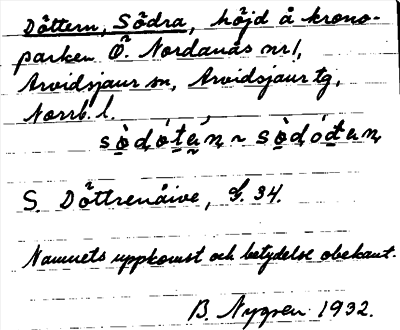 Döttern, Södra, höjd å krono-
parken Ö. Nordanås nr 1,
Arvidsjaur sn, Arvidsjaur tg,
Norrb. l.
sò̱dó́ṯa̰ņ ~ sò̱dó́ṯaņ
S. Döttrenåive, G. 34.
Namnets uppkomst och betydelse obekant.
B. Nygren 1932.